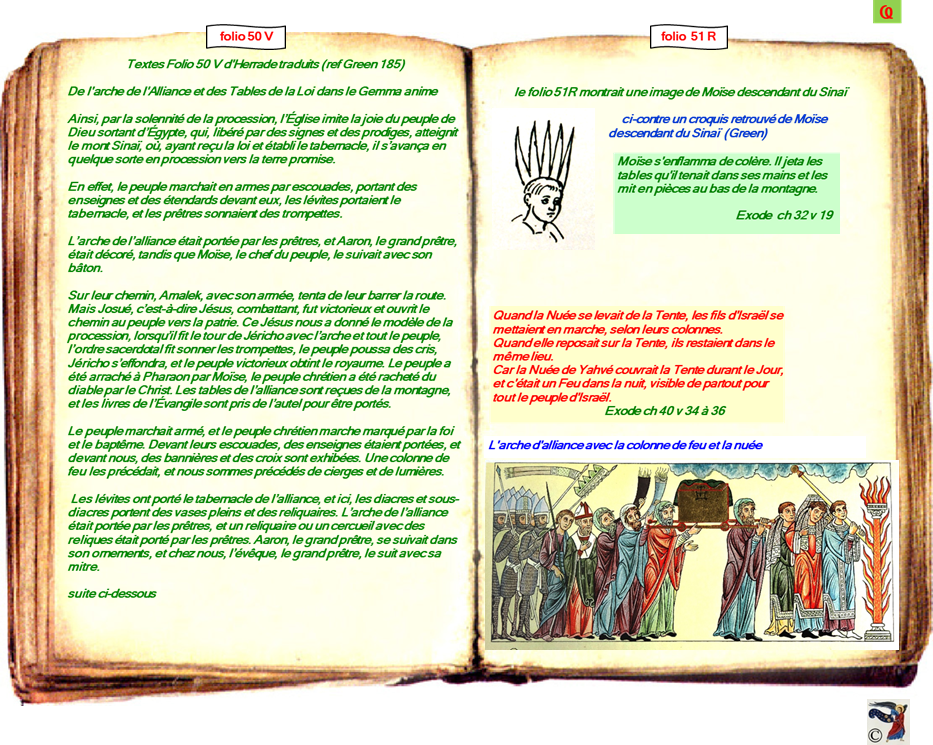 folio 50 V
Textes Folio 50 V d'Herrade traduits (ref Green 185)
De l'arche de l'Alliance et des Tables de la Loi dans le Gemma anime
Ainsi, par la solennité de la procession, l'Église imite la joie du peuple de
Dieu sortant d'Égypte, qui, libéré par des signes et des prodiges, atteignit
le mont Sinaï, où, ayant reçu la loi et établi le tabernacle, il s'avança en
quelque sorte en procession vers la terre promise.
En effet, le peuple marchait en armes par escouades, portant des
enseignes et des étendards devant eux, les lévites portaient le
tabernacle, et les prêtres sonnaient des trompettes.
L'arche de l'alliance était portée par les prêtres, et Aaron, le grand prêtre,
était décoré, tandis que Moïse, le chef du peuple, le suivait avec son
bâton.
Sur leur chemin, Amalek, avec son armée, tenta de leur barrer la route.
Mais Josué, c'est-à-dire Jésus, combattant, fut victorieux et ouvrit le
chemin au peuple vers la patrie. Ce Jésus nous a donné le modèle de la
procession, lorsqu'il fit le tour de Jéricho avec l'arche et tout le peuple,
l'ordre sacerdotal fit sonner les trompettes, le peuple poussa des cris,
Jéricho s'effondra, et le peuple victorieux obtint le royaume. Le peuple a
été arraché à Pharaon par Moïse, le peuple chrétien a été racheté du
diable par le Christ. Les tables de l'alliance sont reçues de la montagne,
et les livres de l'Évangile sont pris de l'autel pour être portés.
Le peuple marchait armé, et le peuple chrétien marche marqué par la foi
et le baptême. Devant leurs escouades, des enseignes étaient portées, et
devant nous, des bannières et des croix sont exhibées. Une colonne de
feu les précédait, et nous sommes précédés de cierges et de lumières.
Les lévites ont porté le tabernacle de l'alliance, et ici, les diacres et sous-
diacres portent des vases pleins et des reliquaires. L'arche de l'alliance
était portée par les prêtres, et un reliquaire ou un cercueil avec des
reliques était porté par les prêtres. Aaron, le grand prêtre, se suivait dans
son ornements, et chez nous, l'évêque, le grand prêtre, le suit avec sa
mitre.
suite ci-dessous
folio 51 R
le folio 51R montrait une image de Moïse descendant du Sinaï
ci-contre un croquis retrouvé de Moïse
descendant du Sinaï (Green)
Moïse s'enflamma de colère. Il jeta les
tables qu'il tenait dans ses mains et les
mit en pièces au bas de la montagne.
Exode ch 32 v 19
Quand la Nuée se levait de la Tente, les fils d'Israël se
mettaient en marche, selon leurs colonnes.
Quand elle reposait sur la Tente, ils restaient dans le
même lieu.
Car la Nuée de Yahvé couvrait la Tente durant le Jour,
et c'était un Feu dans la nuit, visible de partout pour
tout le peuple d'Israël.
Exode ch 40 v 34 à 36
L'arche d'alliance avec la colonne de feu et la nuée
©